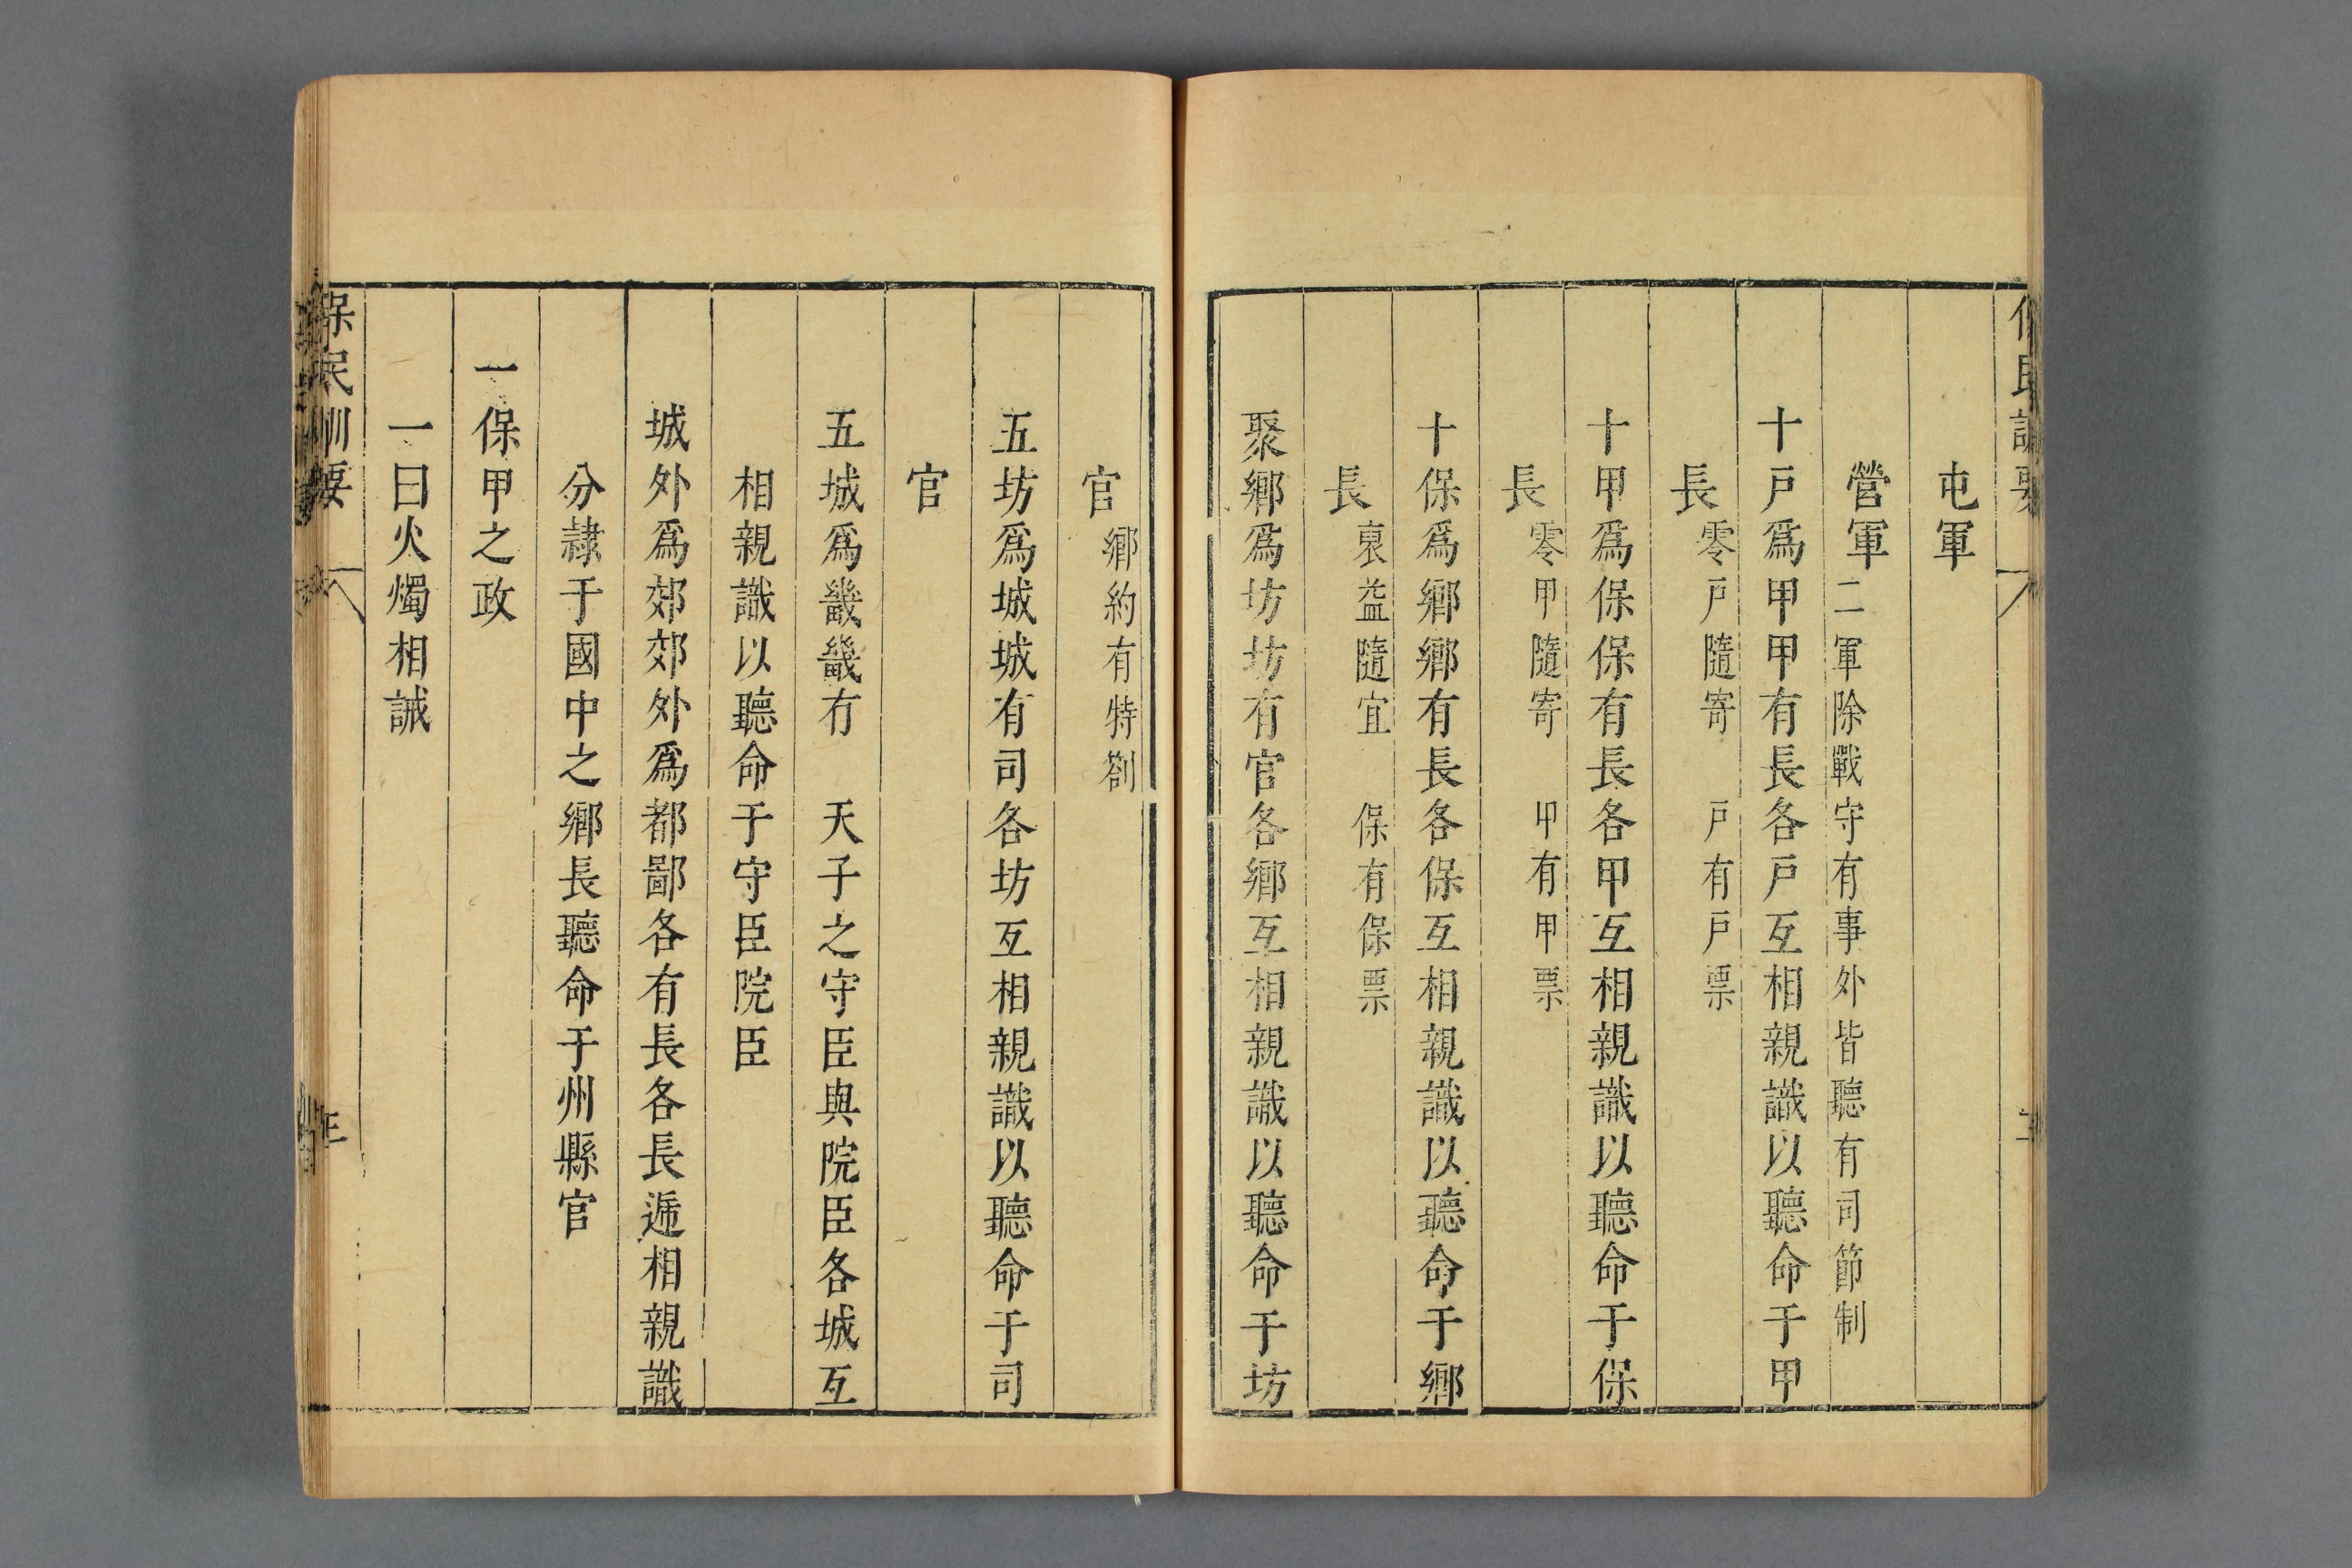 屯軍
營軍二軍除戰守有事外皆聽有司節制
十戶爲甲甲有長各戶互相親識以聽命于甲
長零戶隨寄 戶有戶票
十甲爲保保有長各甲互相親識以聽命于保
長零甲隨寄 甲有甲票
十保爲鄉鄉有長各保互相親識以聽命于鄉
長裒益隨宜 保有保票
聚鄉爲坊坊有官各鄉互相親識以聽命于坊
官鄉約有特劄
五坊爲城城有司各坊互相親識以聽命于司
官
五城爲畿畿有 天子之守臣與院臣各城互
相親識以聽命于守臣院臣
城外爲郊郊外爲都鄙各有長各長遞相親識
分隷于國中之鄉長聽命于州縣官
一保甲之政
一曰火燭相誡
保民訓要